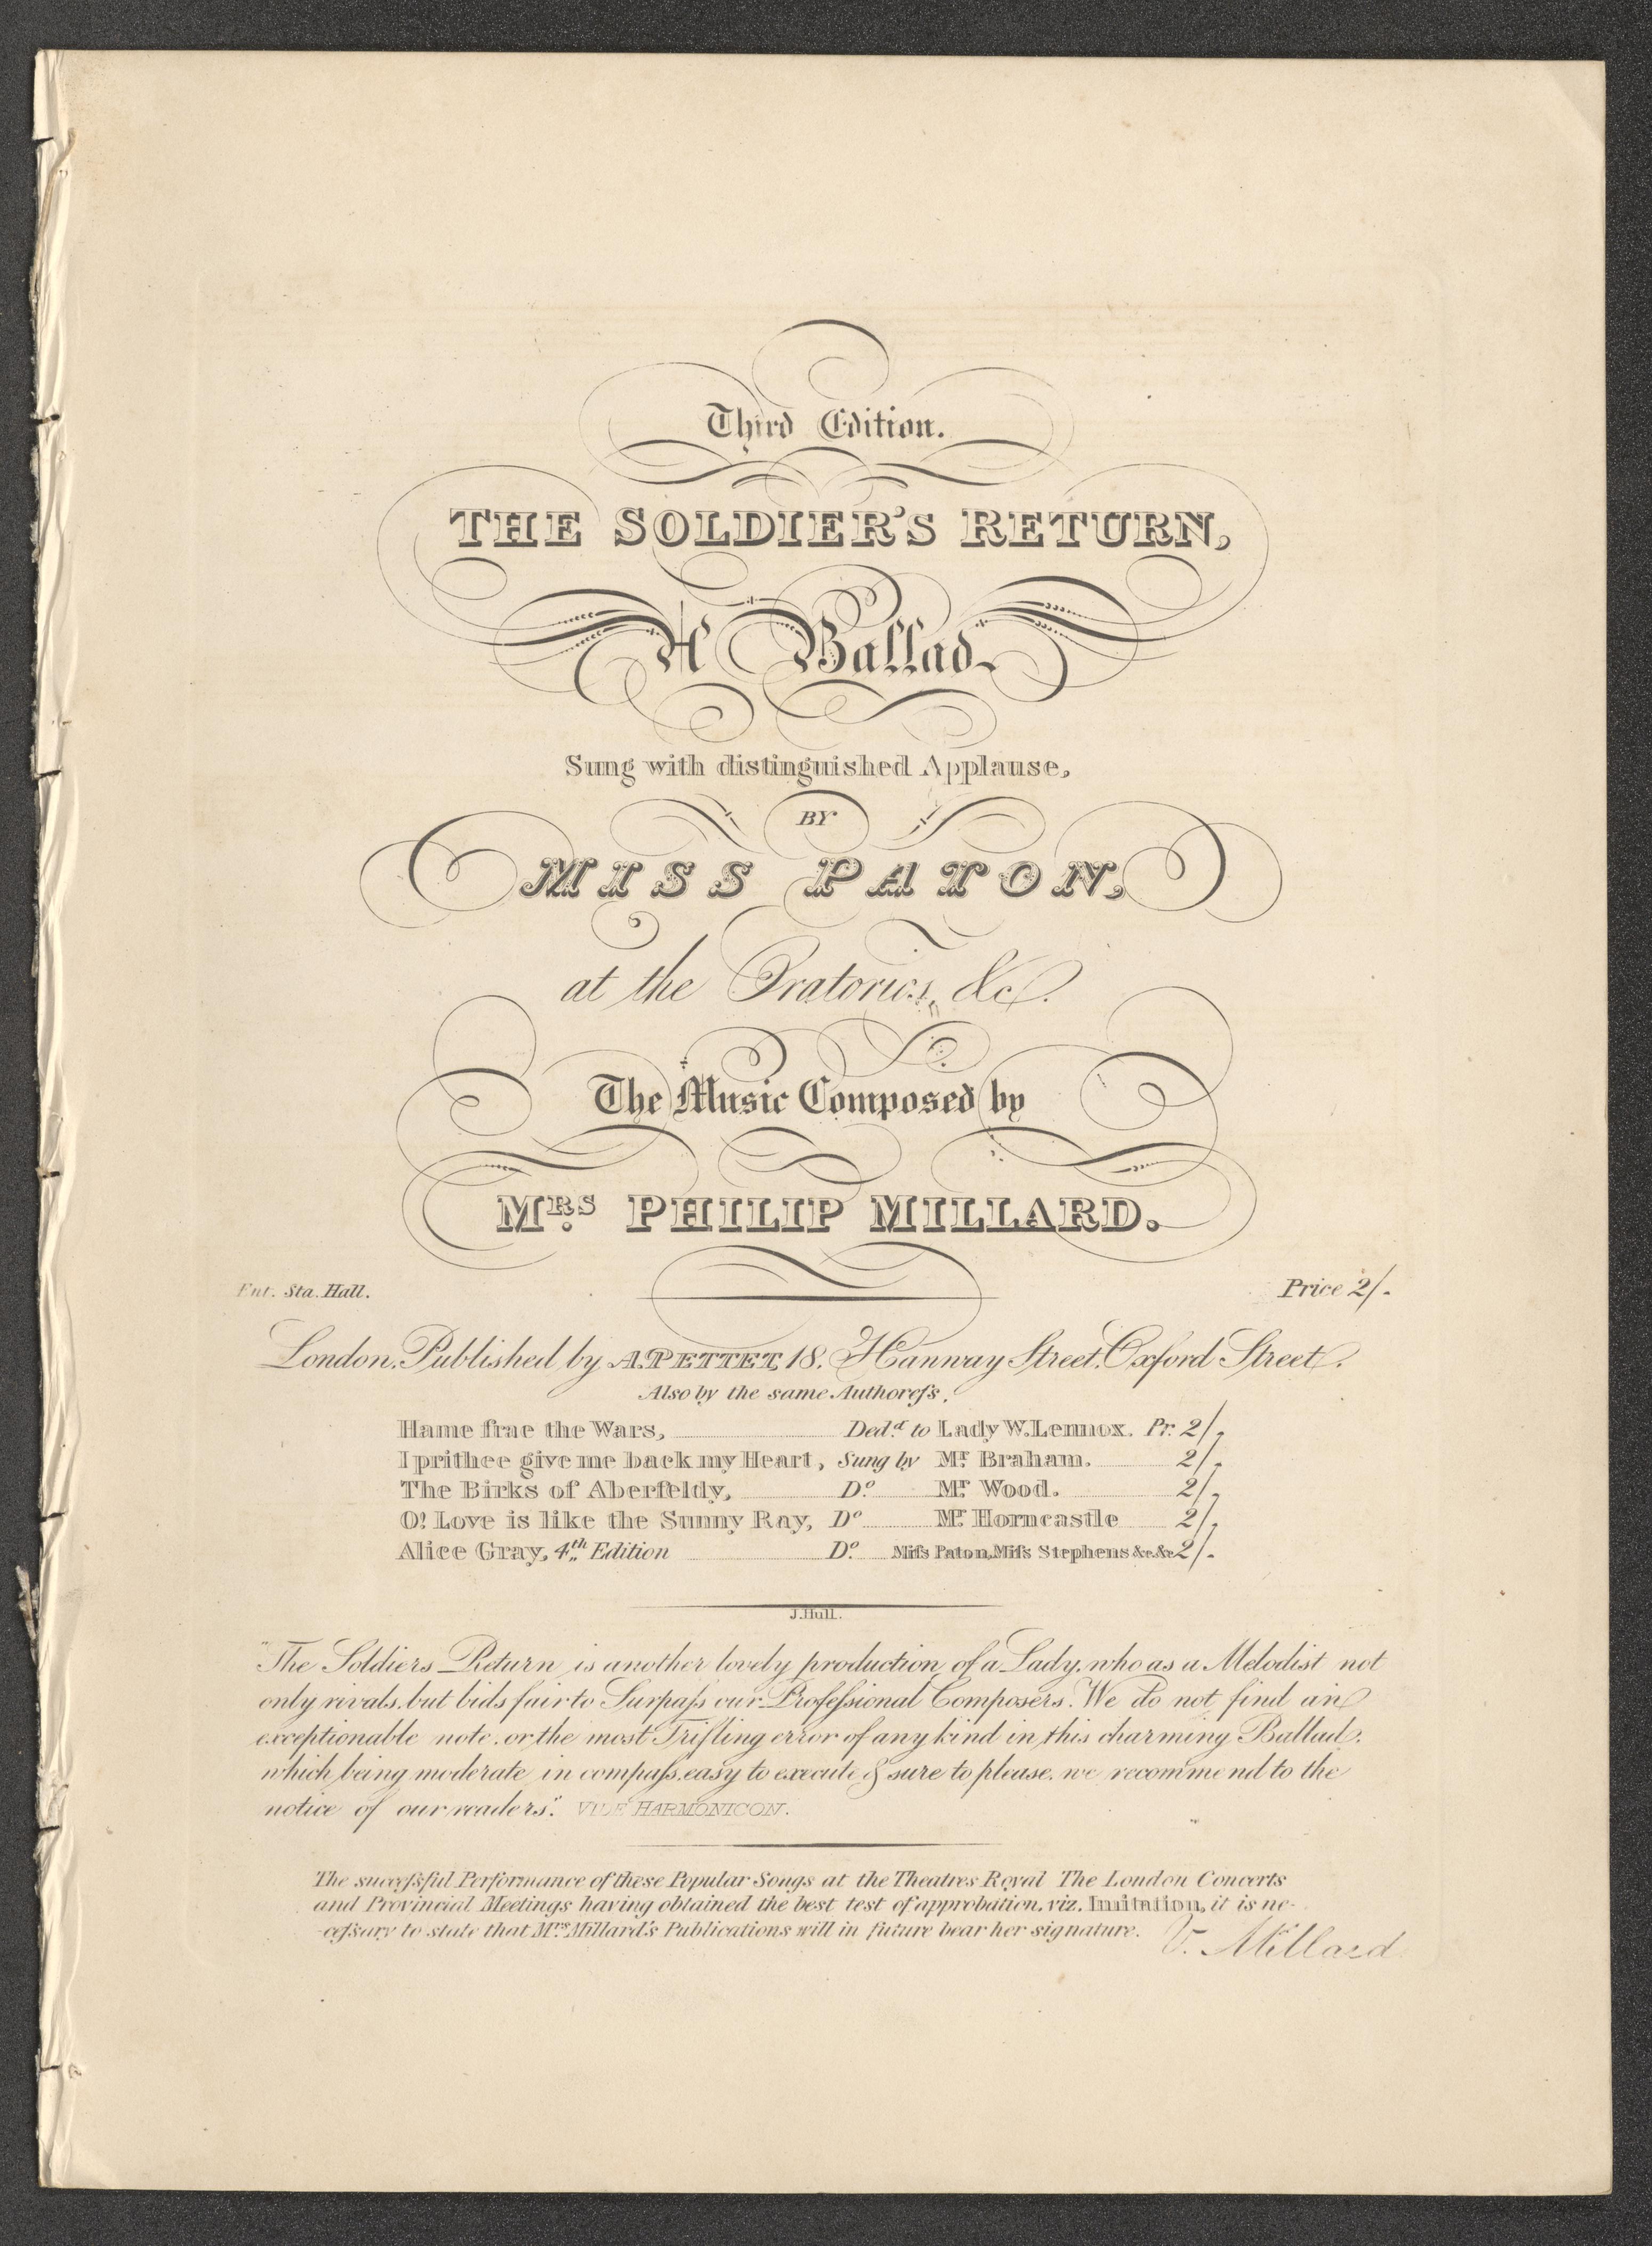 Third Edition.
THE SOLDIER'S RETURN,
A Ballad.
Sung with distinguished Applause,
BY
MISS PATON,
at the Oratorios, &c.
The Music Composed by
MRS. PHILIP MILLARD.
Ent. Sta. Hall. Price 2/.
London. Published by A. PETTET, 18, Hanway Street, Oxford Street.
Also by the same Authoreſs,
Hame frae the Wars, Ded.d to Lady W. Lennox. Pr. 2/.
I prithee give me back my Heart, Sung by Mr. Braham. 2/.
The Birks of Aberfeldy, Do. Mr. Wood. 2/.
O! Love is like the Sunny Ray, Do. Mr. Horncastle 2/.
Alice Gray, 4th Edition Do. Miſs Paton, Miſs Stephens &c. &c. 2/.
J. Hull.
"The Soldiers Return is another lovely production of a Lady, who as a Melodist not
only rivals, but bids fair to Surpaſs our Profeſsional Composers. We do not find an
exceptionable note, or the most Trifling error of any kind in this charming Ballad,
which being moderate in compaſs, easy to execute & sure to please, we recommend to the
notice of our readers." VIDE HARMONICON.
The succeſsful Performance of these Popular Songs at the Theatres Royal The London Concerts
and Provincial Meetings having obtained the best test of approbation, viz. Imitation, it is ne-
-ceſsary to state that Mrs. Millard's Publications will in future bear her signature.
V. Millard